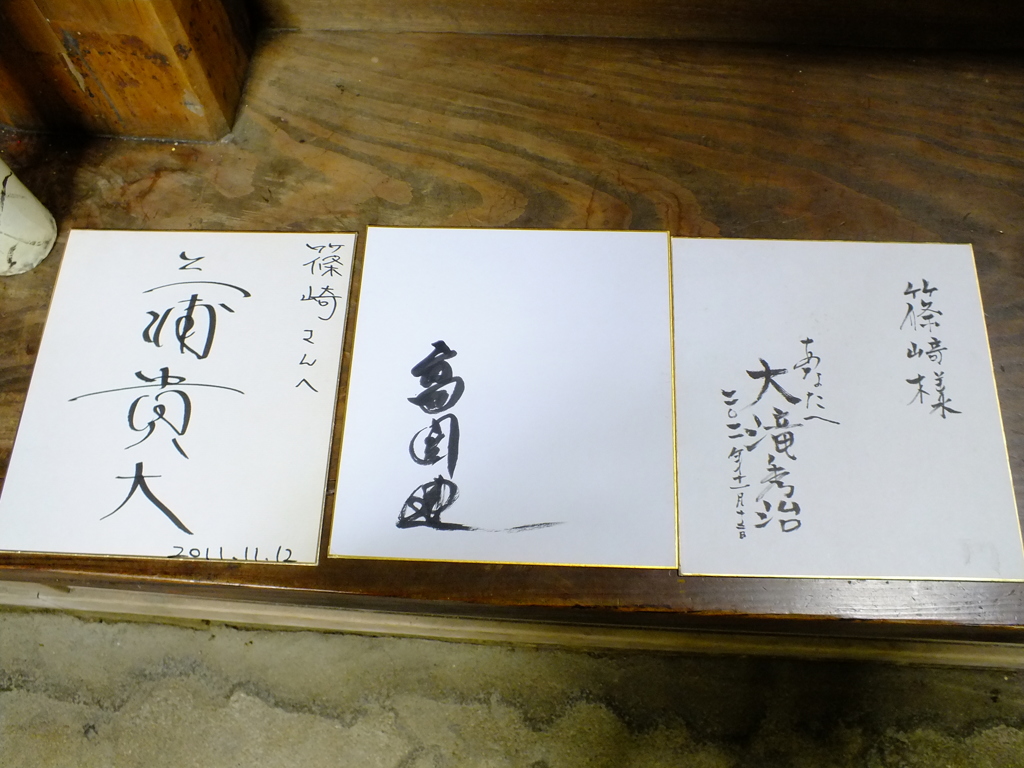 篠崎さんへ
三浦貴大
2011.11.12
高倉健
篠﨑様
あなたへ
大滝秀治
二〇一一年十一月十五日